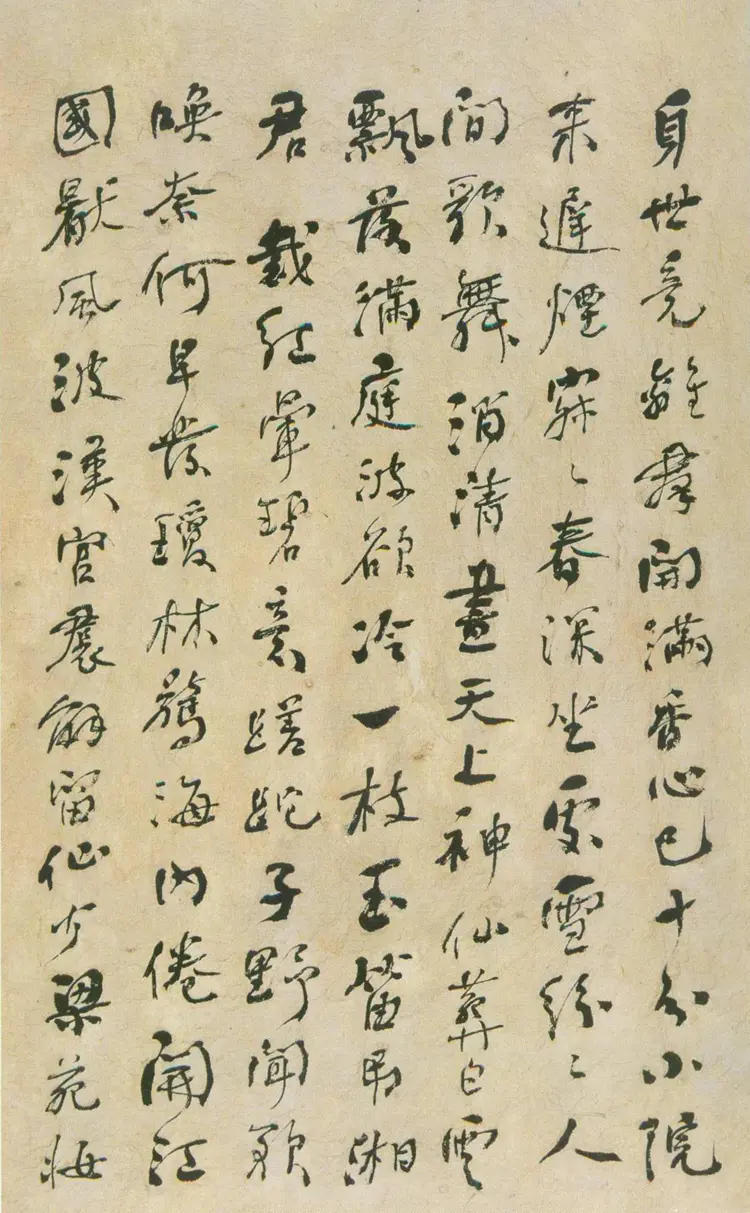 身世竟離群開滿香心已十分小院
来遲煙寂〻春深坐雯雪紛〻人
間歌舞消清晝天上神仙葬白雲
飄落滿庭波欲冷一枝玉笛弔湘
君 裁紅暈碧意蹉跎子野聞歌
喚奈何早發瓊林驚海內倦開江
國厭風波漢宮裙解留仙少梁苑妝